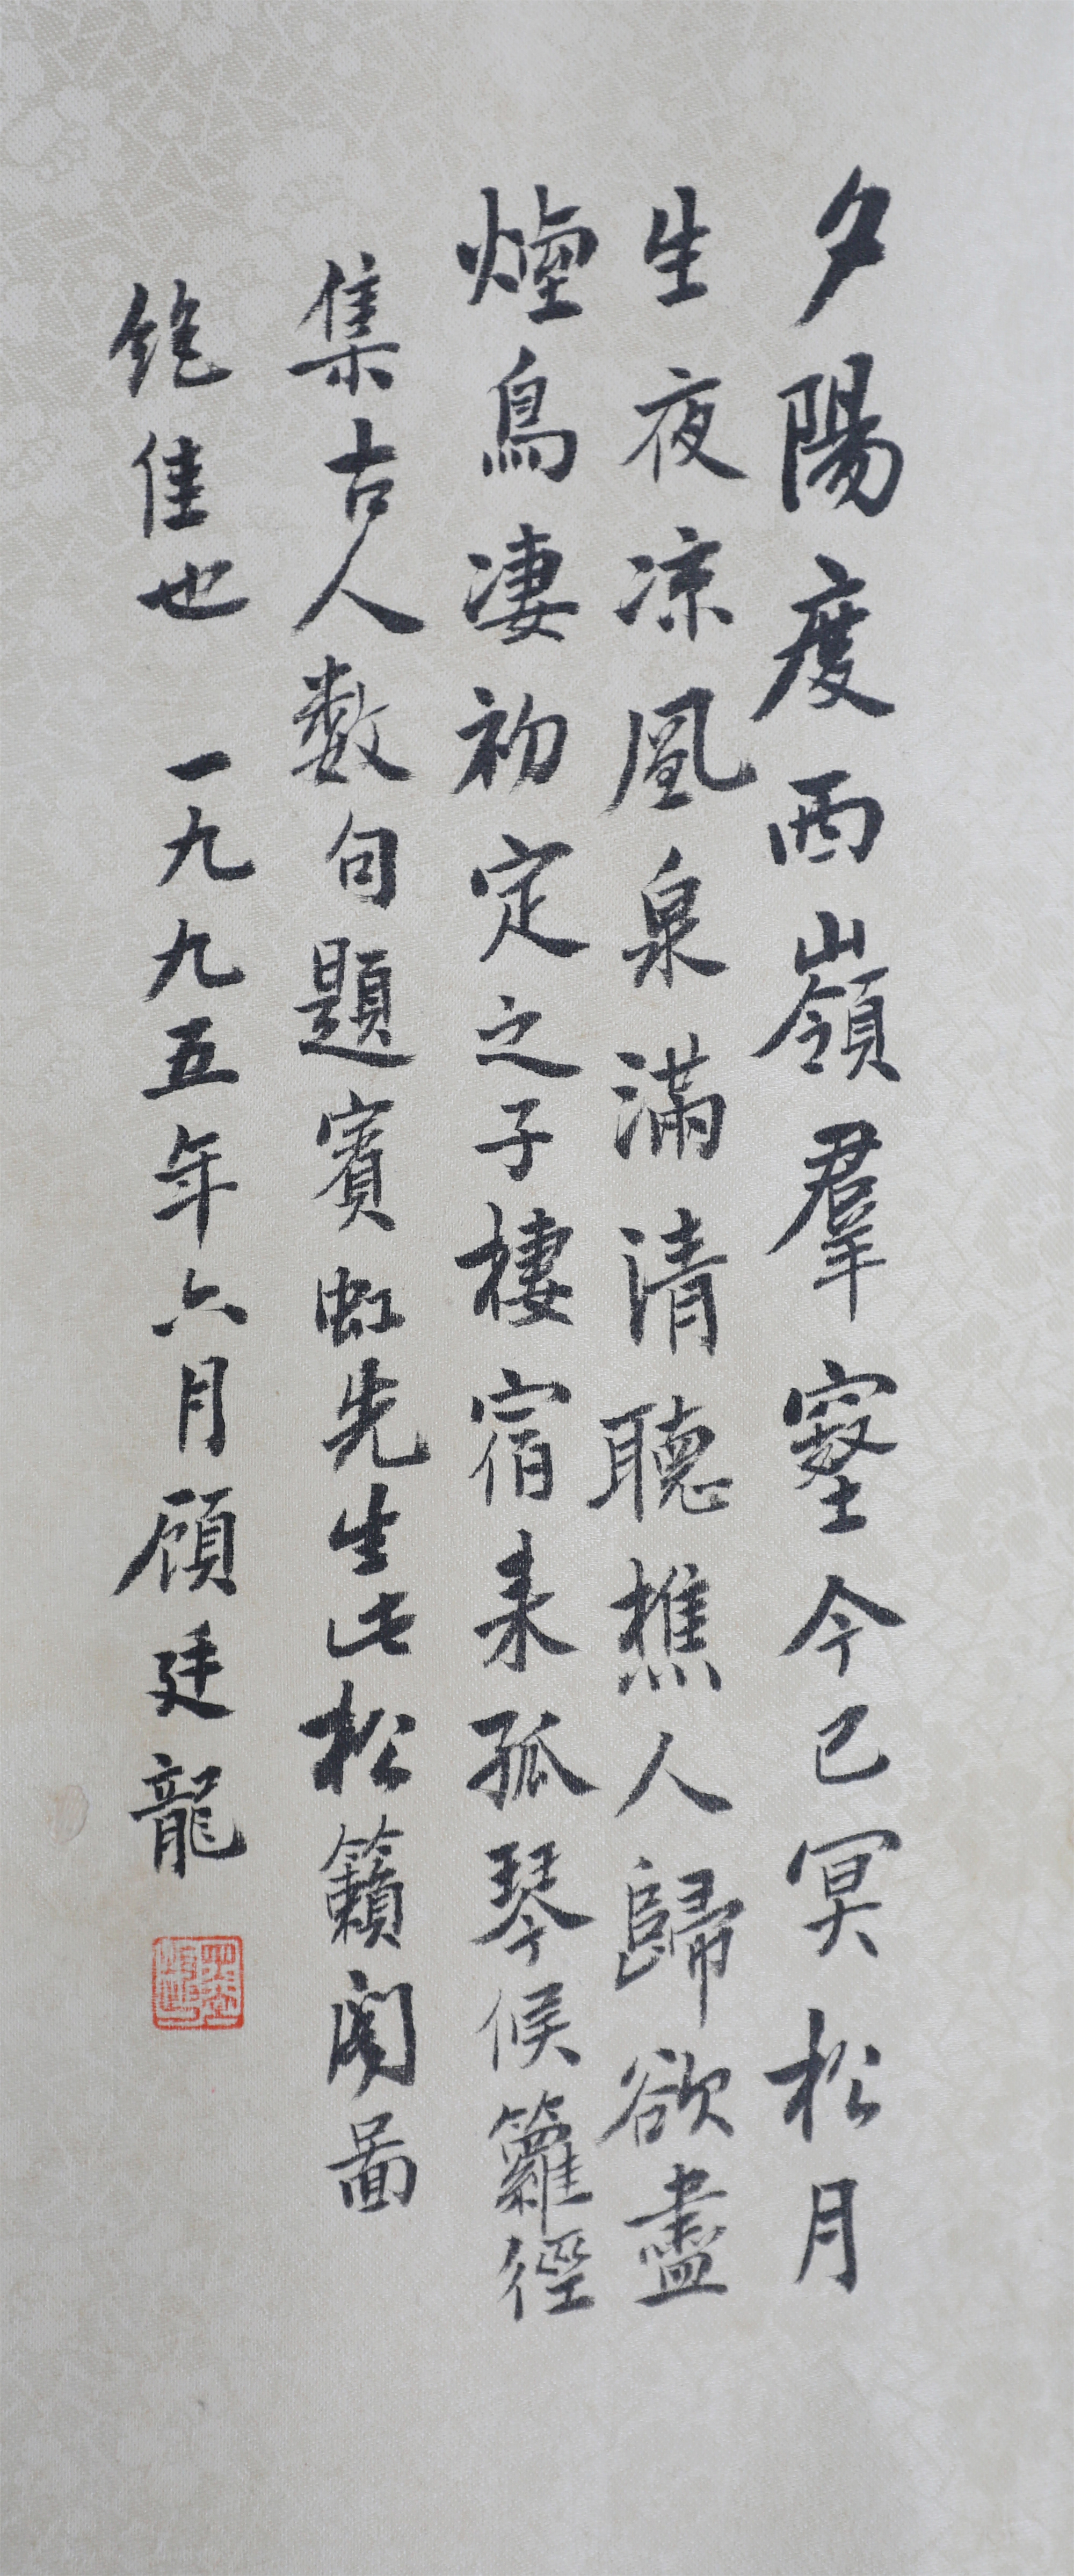 夕陽度西嶺羣壑今已冥松月
生夜凉風泉滿清聽樵人歸欲盡
煙鳥凄初定之子棲宿來孤琴候籮徑
集古人數句題賓虹先生此松籟閣圖
絕佳也 一九九五年六月顧廷龍